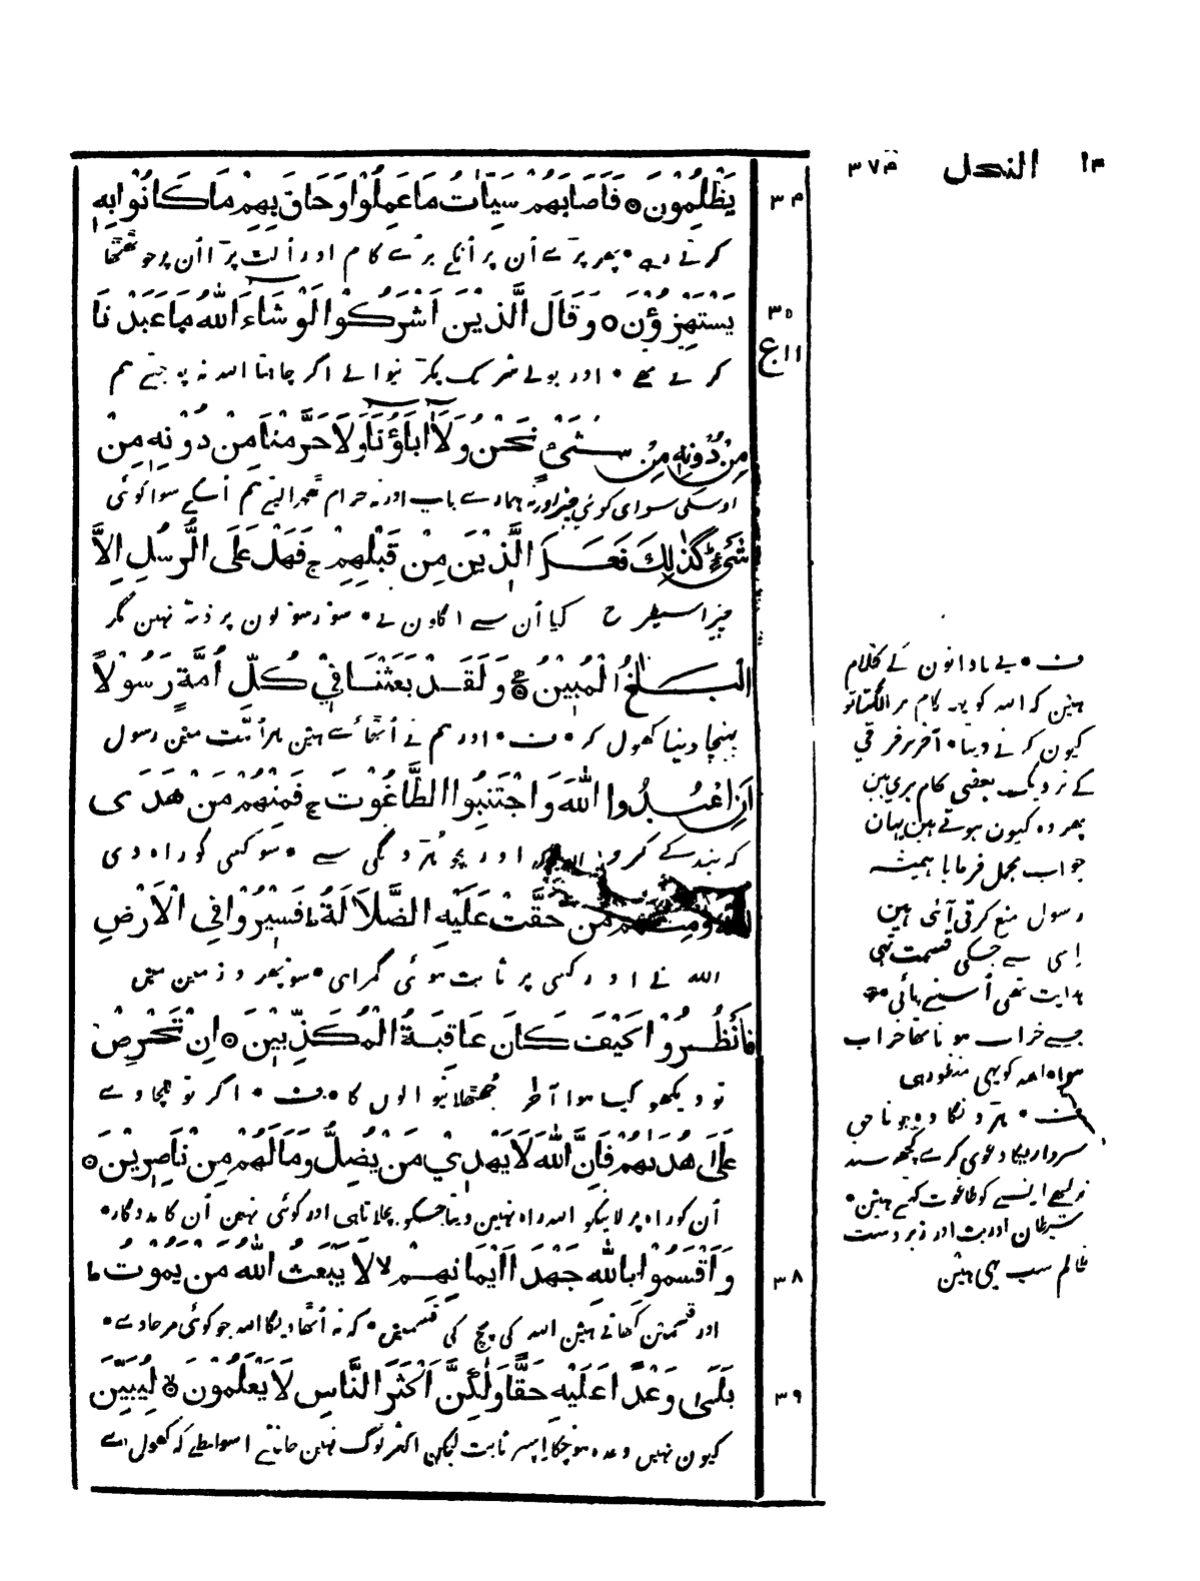 ١٤ النحل ٣٧٤
٣٤
يَظْلِمُونَ ۝ فَاَصَابَهُمْ سَيِّاٰتُ مَا عَمِلُوْا وَحَاقَ بِهِمْ مَا كَانُوْا بِهٖ
كرتے رہے • پھر پڑے اُن پر اُنکے بڑے كام اور اُلٹ پڑا اُن پر جو ٹھٹھا
٣٥
يَسْتَهْزِؤُنَ ۝ وَقَالَ الَّذِيْنَ اَشْرَكُوْا لَوْ شَاءَ اللّٰهُ مَا عَبَدْنَا
١١ع
كرتے تھے • اور بولے شرك پكڑنيوالے اگر چاہتا الله نہ پوجتے ہم
مِنْ دُوْنِهٖ مِنْ شَيْءٍ نَحْنُ وَلَا اٰبَاؤُنَا وَلَا حَرَّمْنَا مِنْ دُوْنِهٖ مِنْ
اوسكی سوای كوئی چيز اور نہ ہمارے باپ اور نہ حرام ٹھہرا ليتے ہم اُسكے سوا كوئی
شَيْءٍ كَذٰلِكَ فَعَلَ الَّذِيْنَ مِنْ قَبْلِهِمْ ج فَهَلْ عَلَى الرُّسُلِ اِلَّا
چيز اسيطرح كيا اُن سے اگلون نے • سو رسولون پر ذمہ نہين مگر
الْبَلٰغُ الْمُبِيْنُ ۝ وَلَقَدْ بَعَثْنَا فِيْ كُلِّ اُمَّةٍ رَسُوْلًا
پہنچا دينا كھول كر • ف • اور ہم نے اُٹھائے ہين ہر اُمّت مين رسول
اَنِ اعْبُدُوا اللّٰهَ وَاجْتَنِبُوا الطَّاغُوْتَ ج فَمِنْهُمْ مَنْ هَدَى
كہ بندگے كرو الله كی اور بچو ہڑدنگی سے • سو كسی كو راہ دی
اللّٰهُ وَمِنْهُمْ مَنْ حَقَّتْ عَلَيْهِ الضَّلَالَةُ ط فَسِيْرُوْا فِي الْاَرْضِ
الله نے اور كسی پر ثابت ہوئی گمراہی • سو پھرو زمين مين
فَانْظُرُوْا كَيْفَ كَانَ عَاقِبَةُ الْمُكَذِّبِيْنَ ۝ اِنْ تَحْرِصْ
تو ديكھو كيسا ہوا آخر جھٹھلانيوالوں كا • ف • اگر تو للچاوے
عَلَى هُدٰىهُمْ فَاِنَّ اللّٰهَ لَا يَهْدِيْ مَنْ يُضِلُّ وَمَا لَهُمْ مِنْ نَاصِرِيْنَ ۝
اُن كو راہ پر لانيكو الله راہ نہين ديتا جسكو بچلاتا ہی اور كوئی نہين اُن كا مددگار •
٣٨
وَاَقْسَمُوْا بِاللّٰهِ جَهْدَ اَيْمَانِهِمْ لا لَا يَبْعَثُ اللّٰهُ مَنْ يَمُوْتُ ط
اور قسمين كھاتے ہين الله كی پچ كی قسمين • كہ نہ اُٹھاديگا الله جو كوئی مرجاوے •
٣٩
بَلَى وَعْدًا عَلَيْهِ حَقًّا وَلٰكِنَّ اَكْثَرَ النَّاسِ لَا يَعْلَمُوْنَ ۝ لِيُبَيِّنَ
كيون نہيں وعدہ ہو چكا اِسپر ثابت ليكن اكثر لوگ نہين جانتے اسواسطے كہ كھول دے
ف • يے نادانون كے كلام
ہين كہ الله كو يہ كام برا لگتا تو
كيون كرنے ديتا • آخر ہر فرقی
كے نزديك بعضی كام بری ہين
پھر وہ كيون ہوتے ہين يہان
جواب مجمل فرمايا ہميشہ
رسول منع كرتی آئی ہين
اِسی سے جسكی قسمت تھی
ہدايت تھی اُسنے پائی •
جسے خراب ہونا تھا خراب
ہوا • الله كو يہی منظور ہی
ف • ہڑدنگا وہ جو ناحق
سرداريكا دعوی كرے كچھ سند
نہ ركھے ايسے كو طاغوت كہتے ہين •
شيطان اور بت اور زبردست
ظالم سب يہی ہين